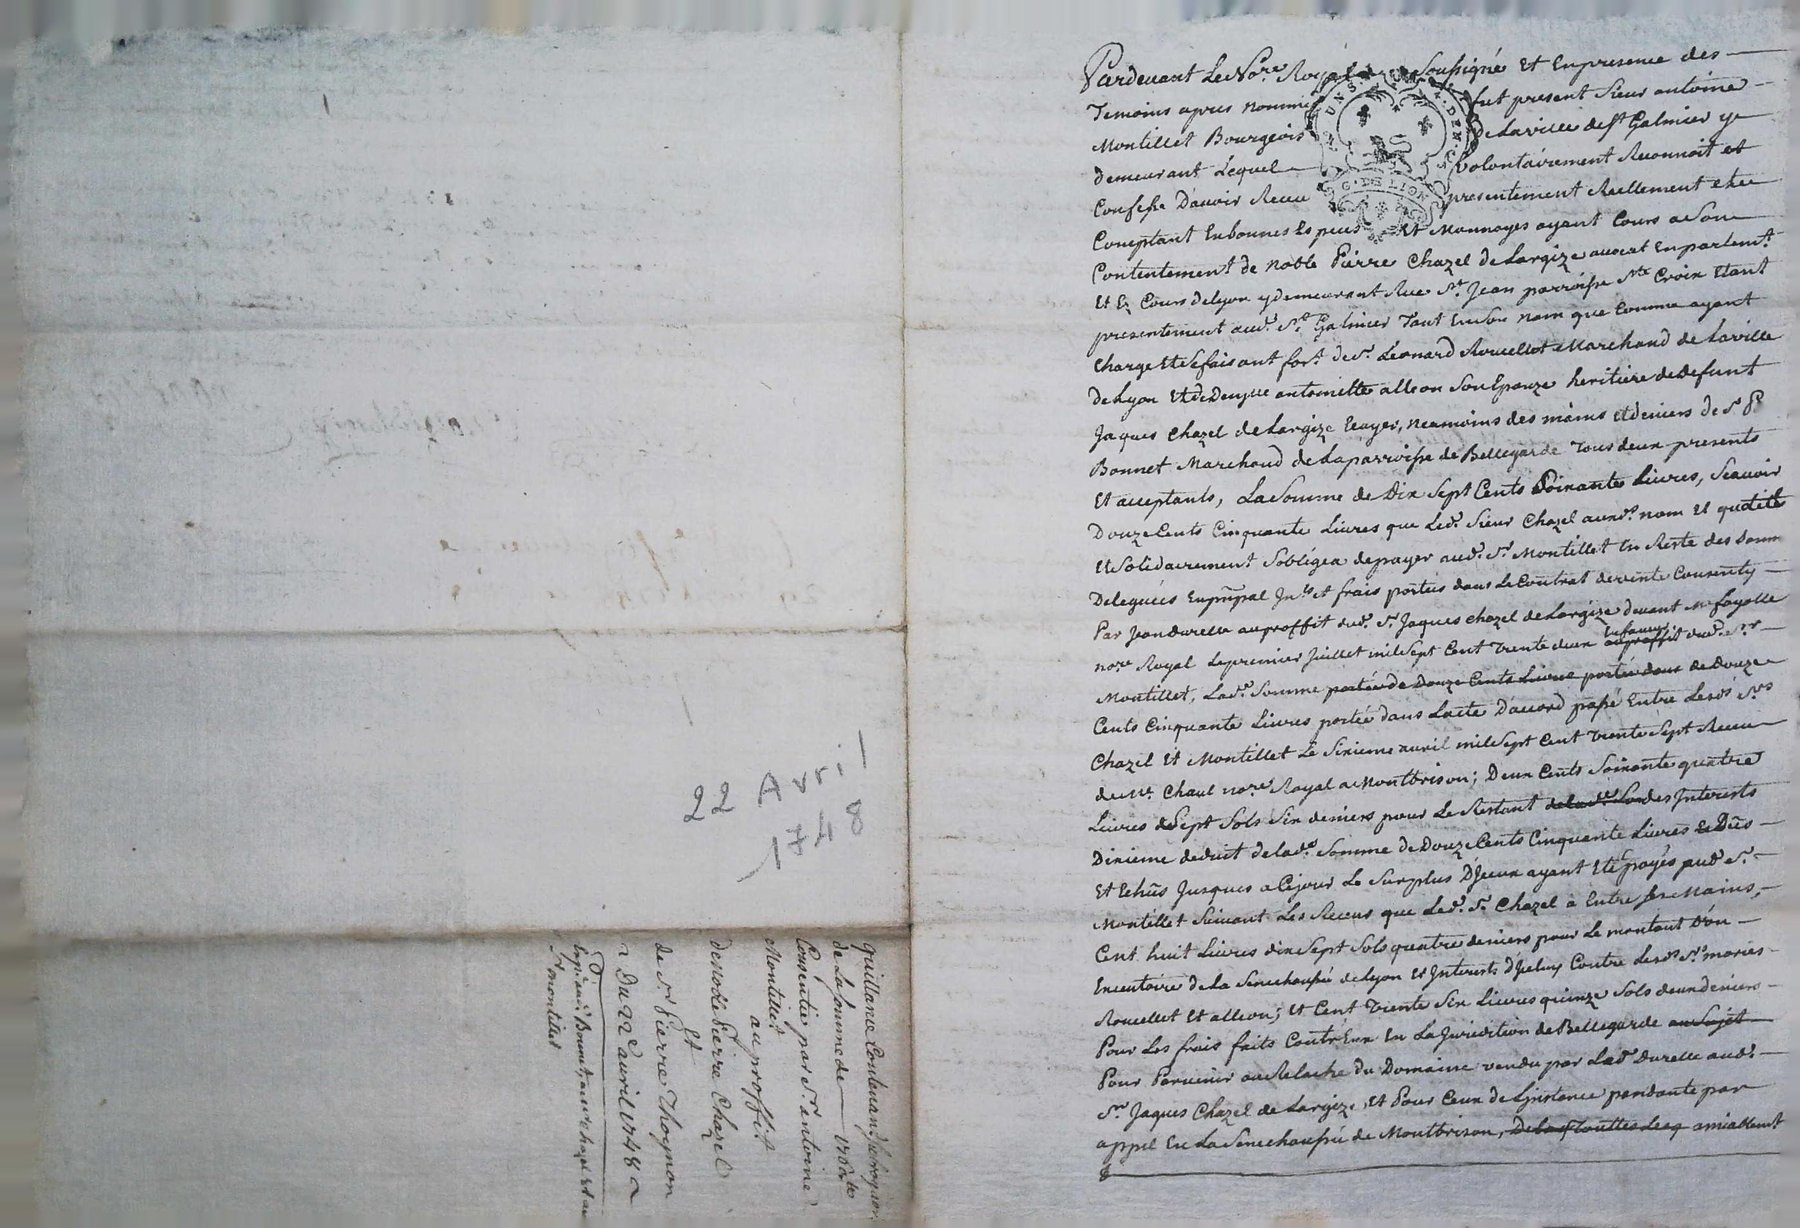 Pardevant Le No.re Royal Soussigné Et En presence des
Temoins apres nommés fut present Sieur antoine
Montillet Bourgeois de La ville de St Galmier y
demeurant Lequel volontairement Reconnoit et
Confesse D'avoir Receu presentement Reellement
Comptant En bonnes Especes Et Monnoyes ayant Cours a Son
Contentement de noble Pierre Chazel de Largize avocat En parlemt.
Et Ez Cours de Lyon y demeurant Rue St. Jean parroisse Ste. Croix Etant
presentement aud. St. Galmier Tant En Son nom que Comme ayant
Charge Et Se faisant fort de Sr. Leonard Roucellet Marchand de La ville
de Lyon Et de antoinette alleon Son Epouze heritiere de Defunt
Jaques Chazel de Largize Ecuyer, neamoins des mains Et deniers de Sr. Pre
Bonnet Marchand de La parroisse de Bellegarde Tous deux presents
Et acceptants, La Somme de Dix Sept Cents Soixante Livres, Scavoir
Douze Cents Cinquante Livres que Led. Sieur Chazel auxd. nom Et qualité
Et Solidairement S'obligea de payer aud. Sr. Montillet En Reste des Somm
Deleguées En prinpal Jnts. et frais portées dans Le Contrat de vente Consenty
Par Jean Durelle au proffit dud. Sr. Jaques Chazel de Largize devant Me fayolle
nore Royal Le premier Juillet mil Sept Cent Trente deux au proffit En faveur dud. Sr.
Montillet, Lad. Somme portée de Douze Cents Livres portée dans de Douze
Cents Cinquante Livres portée dans L'acte D'accord passé Entre Lesds. Srs
Chazel Et Montillet Le Sixieme avril mil Sept Cent Trente Sept Receu
de Me. Chaul nore Royal a Montbrison; Deux Cents Soixante quatre
Livres Sept Sols Six deniers pour Le Restant des Jnterests
Dixieme deduit de lad. Somme de Douze Cents Cinquante Livres Dûs
Et Echûs Jusques a Ce jour Le Surplus D'Jceux ayant Eté payés aud. Sr.
Montillet Suivant Les Receus que Led. Sr. Chazel a Entre Ses Mains,
Cent huit Livres dix Sept Sols quatre deniers pour Le montant D'un
Executoire de La Senechaussée de Lyon Et Jnterests d'Jceluy Contre Lesds. mariés
Roucellet Et alleon; Et Cent Trente Six Livres quinze Sols deux deniers
Pour Les frais faits Contr'Eux En La Juridition de Bellegarde au Sujet
Pour Parvenir au Relache du Domaine vendu par Led. Durelle aud.
Sr. Jaques Chazel de Largize, Et Pour Ceux de L'jnstance pendante par
appel En La Senechaussée de Montbrison, amiablemt
22 Avril
1748
quittance Contenant
de La Somme de 1760
Consentie par Sr. antoine
Montillet
au proffit
de Noble Pierre Chazel
Et
de Sr. Pierre Thoynon
Du 22e avril 1748